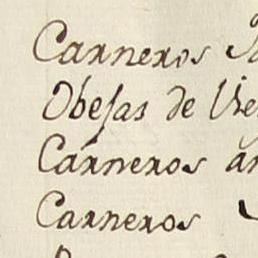 Carneros
Obejas de
Carneros
Carneros